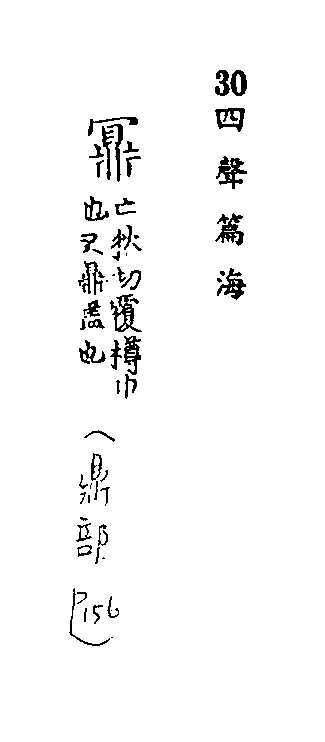 30四聲篇海
鼏
亡狄切覆樽巾
也又鼎盖也
(鼎部 P156)